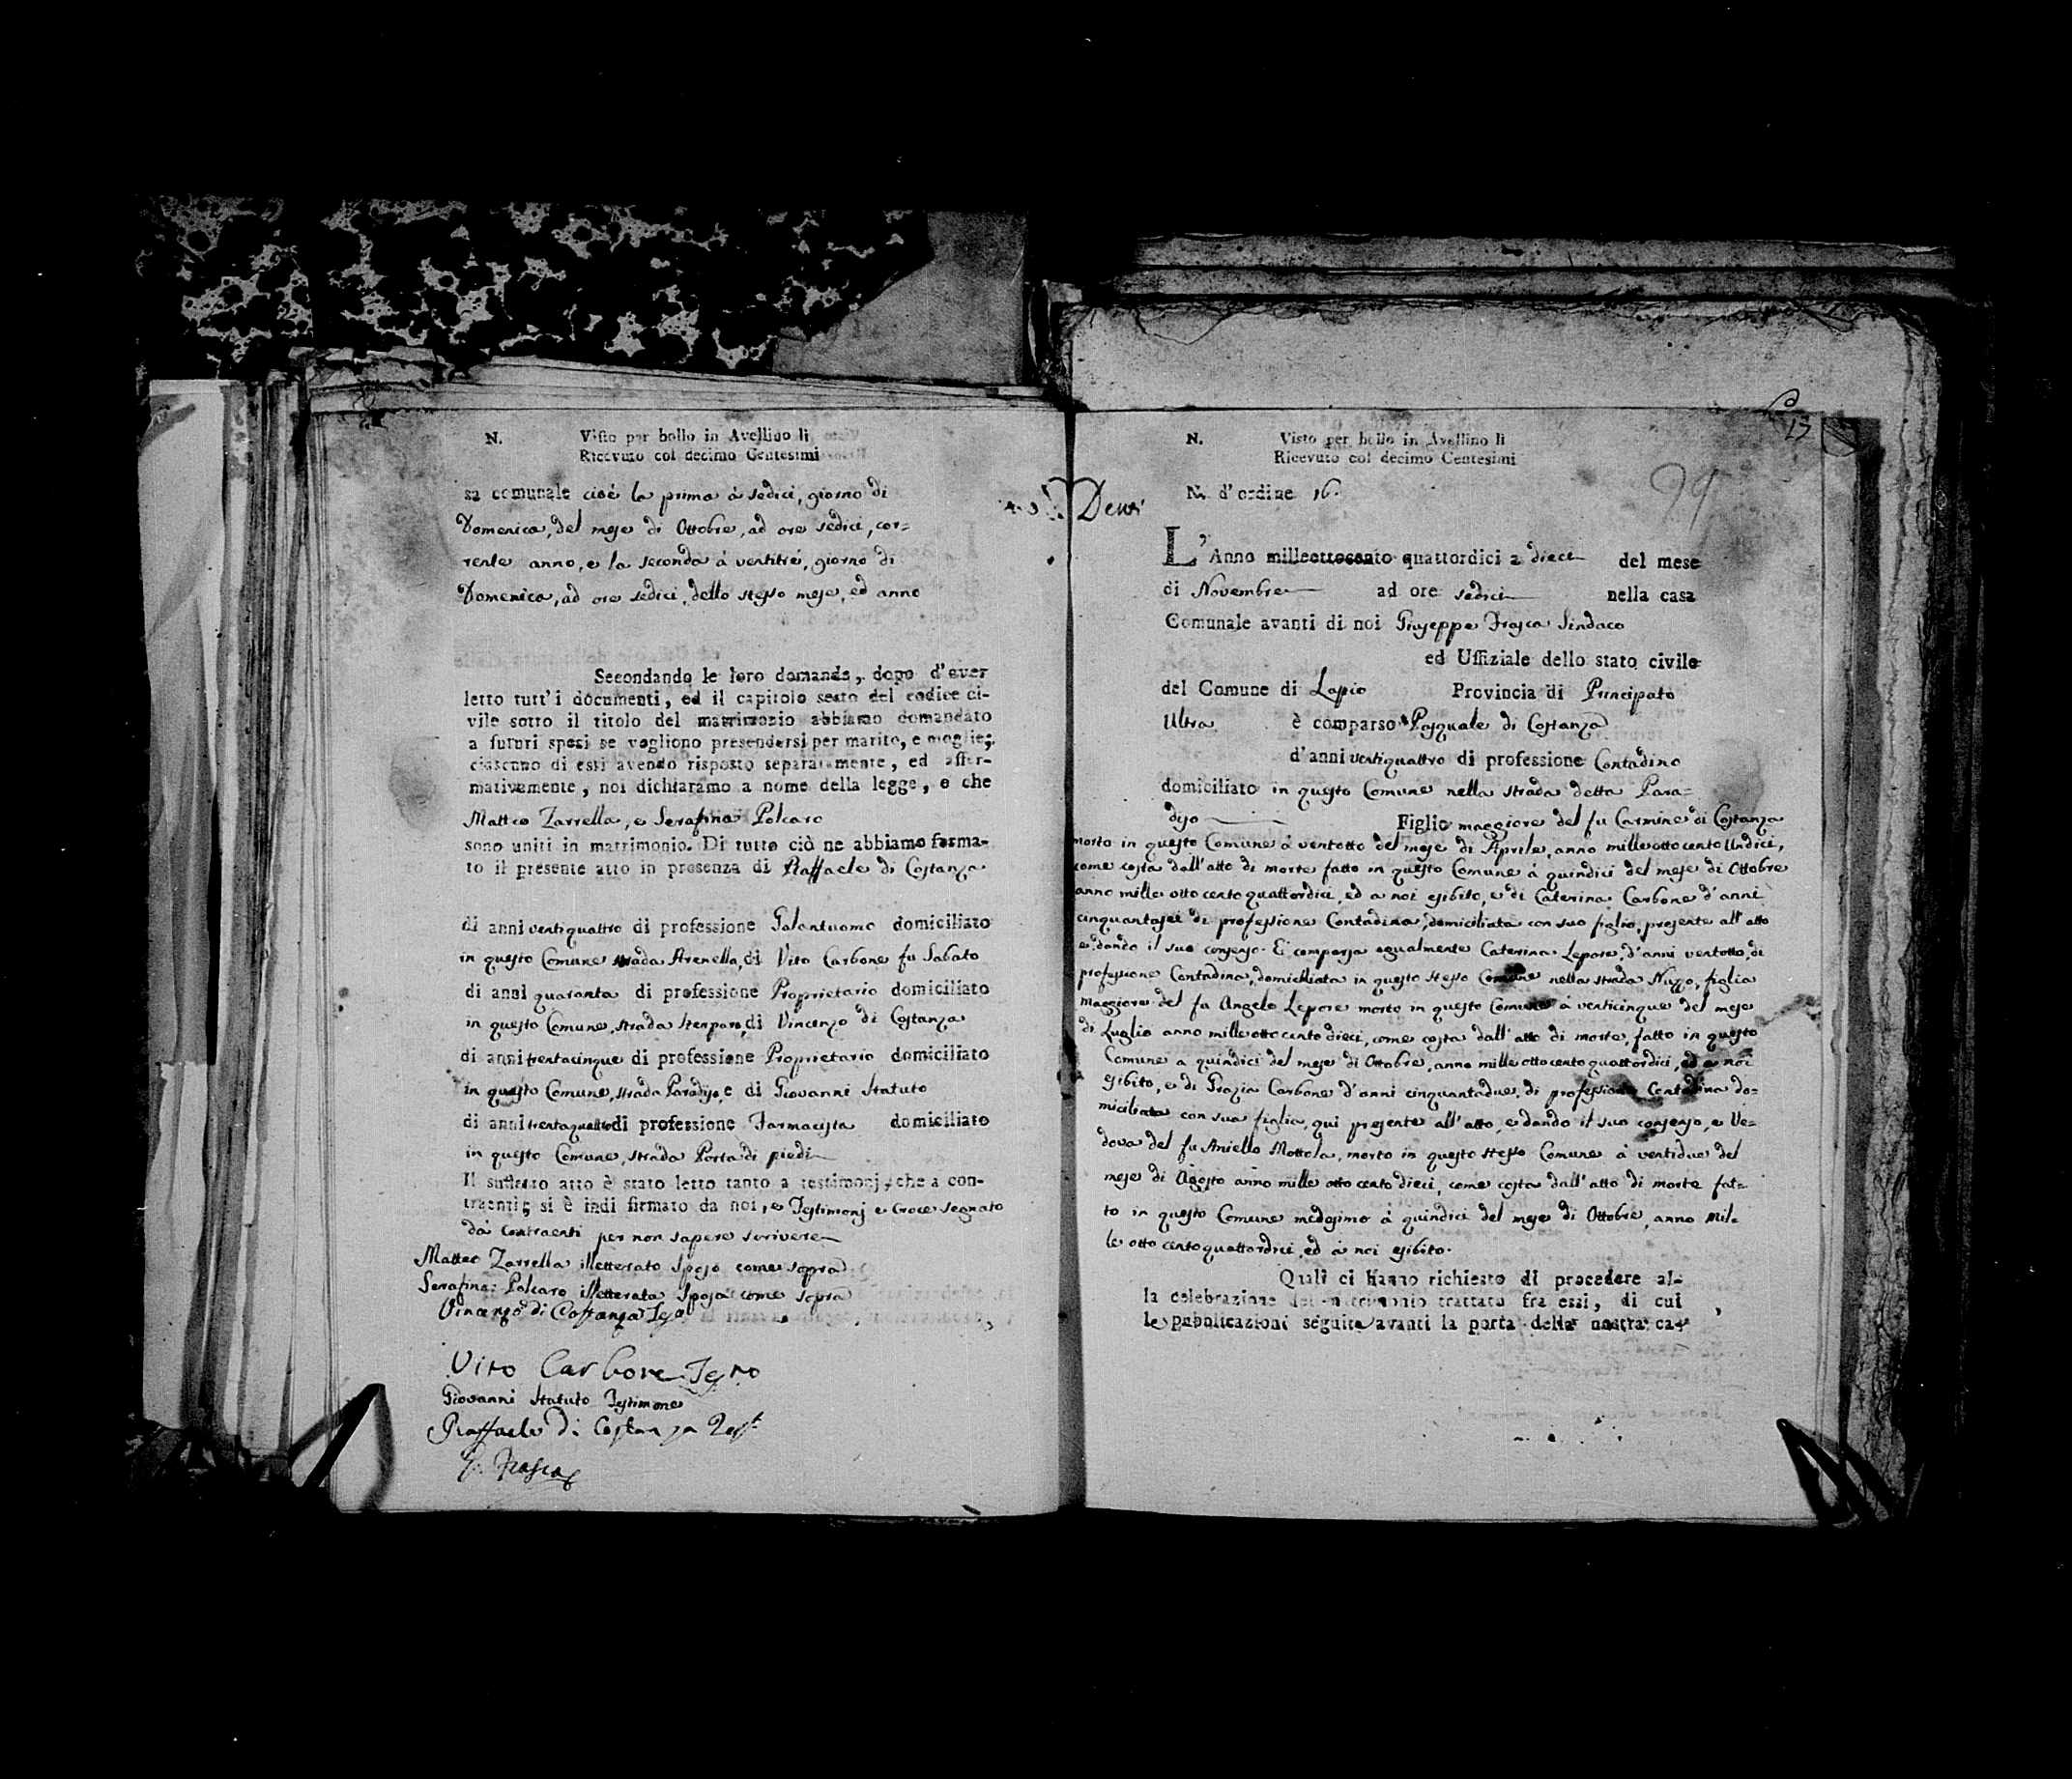 N. Visto per bollo in Avellino li
Ricevuto col decimo Centesimi
sa comunale cioè la prima à sedici, giorno di
Domenica, del mese di Ottobre, ad ore sedici, cor=
rente anno, e la seconda à ventitré, giorno di
Domenica, ad ore sedici, dello stesso mese, ed anno
Secondando le loro domande, dopo d'aver
letto tutt'i documenti, ed il capitolo sesto del codice ci-
vile sotto il titolo del matrimonio abbiamo domandato
a futuri sposi se vogliono presendersi per marito, e moglie;
ciascuno di essi avendo risposto separatamente, ed affer-
mativamente, noi dichiaramo a nome della legge, e che
Matteo Zarrella, e Serafina Polcaro
sono uniti in matrimonio. Di tutto ciò ne abbiamo forma-
to il presente atto in presenza di Raffaele di Costanza
di anni ventiquattro di professione Galantuomo domiciliato
in questo Comune strada Arenella, di Vito Carbone fu Sabato
di anni quaranta di professione Proprietario domiciliato
in questo Comune, strada di Vincenzo di Costanza
di anni trentacinque di professione Proprietario domiciliato
in questo Comune, strada Paradiso, e di Giovanni Statuto
di anni trentaquattro di professione Farmacista domiciliato
in questo Comune, strada Porta di piedi
Il suddetto atto è stato letto tanto a testimonj, che a con-
traenti; si è indi firmato da noi, e Testimonj e Croce segnato
dà Contraenti per non sapere scrivere
Matteo Zarrella illetterato Sposo come sopra
Serafina Polcaro illetterata Sposa come sopra
Vincenzo di Costanza Tes.o
Vito Carbone Testo
Giovanni Statuto Testimone
Raffaele Di Costanza Test.
G. Frasca
13
N. Visto per bollo in Avellino li
Ricevuto col decimo Centesimi
N. d'ordine 16.
99
L'Anno milleottocento quattordici a dieci del mese
di Novembre ad ore sedici nella casa
Comunale avanti di noi Giuseppe Frasca Sindaco
ed Uffiziale dello stato civile
del Comune di Lapio Provincia di Principato
Ultra è comparso Pasquale di Costanza
d'anni ventiquattro di professione Contadino
domiciliato in questo Comune nella strada detta Para=
diso Figlio maggiore del fu Carmine di Costanza
morto in questo Comune à ventotto del mese di Aprile, anno mille otto cento Undici,
come costa dall'atto di morte fatto in questo Comune à quindici del mese di Ottobre
anno mille otto cento quattordici, ed a noi esibito, e di Caterina Carbone d'anni
cinquantasei di professione Contadina, domiciliata con suo figlio, presente all'atto
e dando il suo consenso. E' comparsa egualmente Caterina Lepore, d'anni ventotto, di
professione Contadina, domiciliata in questo stesso Comune nella strada Nuzzo, figlia
maggiore del fu Angelo Lepore morto in questo Comune à venticinque del mese
di Luglio anno mille otto cento dieci, come costa dall'atto di morte, fatto in questo
Comune a quindici del mese di Ottobre, anno mille otto cento quattordici, ed a noi
esibito, e di Grazia Carbone d'anni cinquantadue, di professione Contadina do=
miciliata con sua figlia, qui presente all'atto, e dando il suo consenso, e Ve=
dova del fu Aniello Mottola, morto in questo stesso Comune à ventidue del
mese di Agosto anno mille otto cento dieci, come costa dall'atto di morte fat=
to in questo Comune medesimo à quindici del mese di Ottobre, anno Mil=
le otto cento quattordici, ed à noi esibito.
Quali ci hanno richiesto di procedere al-
la celebrazione del matrimonio trattato fra essi, di cui
le pubblicazioni seguite avanti la porta della nostra ca-